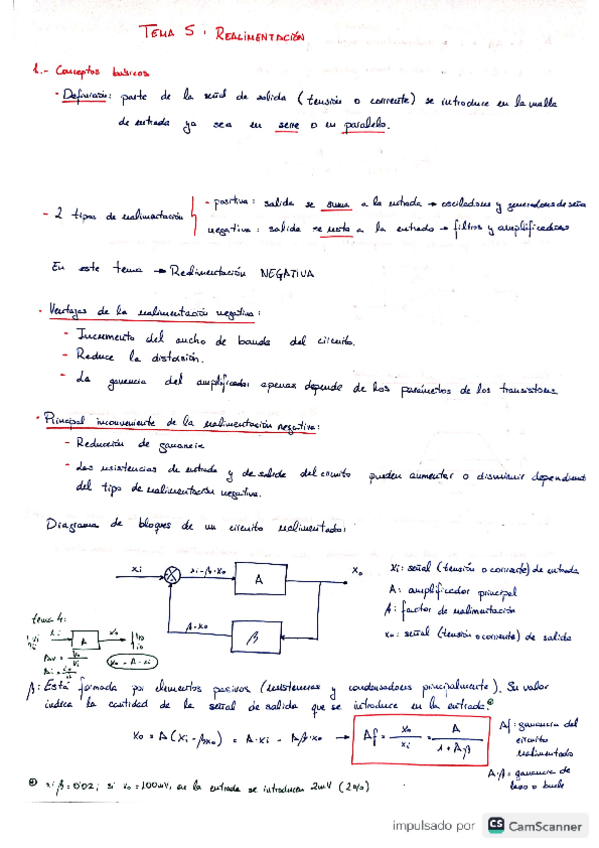 TEMA 5: REALIMENTACIÓN
1.- Conceptos básicos
- Definición: parte de la señal de salida (tensión o corriente) se introduce en la malla
de entrada ya sea en serie o en paralelo.
- 2 tipos de realimentación
- positiva: salida se suma a la entrada → osciladores y generadores de señal
negativa: salida se resta a la entrada → filtros y amplificadores
En este tema → Realimentación NEGATIVA
· Ventajas de la realimentación negativa:
- Incremento del ancho de banda del circuito.
- Reduce la distorsión.
- La ganancia del amplificador apenas depende de los parámetros de los transistores
· Principal inconveniente de la realimentación negativa:
- Reducción de ganancia
- Las resistencias de entrada y de salida del circuito pueden aumentar o disminuir dependiendo
del tipo de realimentación negativa.
Diagrama de bloques de un circuito realimentado:
xi
xi-β·xo
A
xo
β·xo
β
xi: señal (tensión o corriente) de entrada
A: amplificador principal
β: factor de realimentación
xo: señal (tensión o corriente) de salida
tema 4:
A
xo = A·xi
β: Está formada por elementos pasivos (resistencias y condensadores principalmente). Su valor
indica la cantidad de la señal de salida que se introduce en la entrada.
xo = A(xi - βxo) = A·xi - Aβ·xo → Af = xo/xi = A/(1 + Aβ)
Af: ganancia del
circuito
realimentado
A·β = ganancia de
lazo o bucle
si β=0'02; si vo=100mV, en la entrada se introducen 2mV (2%)
impulsado por CS CamScanner